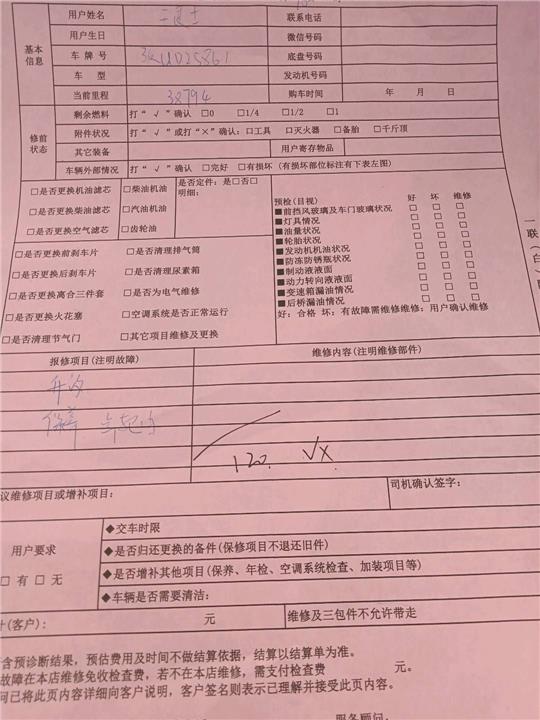 基本信息
用户姓名
联系电话
用户生日
微信号码
车 牌 号
底盘号码
车 型
发动机号码
当前里程 38794 购车时间 年 月 日
修前状态
剩余燃料 打“√”确认 □0 □1/4 □1/2 □1
附件状况 打“√”或打“×”确认：□工具 □灭火器 □备胎 □千斤顶
其它装备 用户寄存物品
车辆外部情况 打“√”确认 □完好 □有损坏（有损坏部位标注有下表左图）
□是否更换机油滤芯 □柴油机油 是否定件：是□否□
明细：
□是否更换柴油滤芯 □汽油机油
□是否更换空气滤芯 □齿轮油
□是否更换前刹车片 □是否清理排气筒
□是否更换后刹车片 □是否清理尿素箱
□是否更换离合三件套 □是否为电气维修
□是否更换火花塞 □空调系统是否正常运行
□是否清理节气门 □其它项目维修及更换
预检(目视) 好 坏 维修
■前挡风玻璃及车门玻璃状况 □ □ □
■灯具情况 □ □ □
■油量状况 □ □ □
■轮胎状况 □ □ □
■发动机机油状况 □ □ □
■防冻防锈瓶状况 □ □ □
■制动液液面 □ □ □
■动力转向液液面 □ □ □
■变速箱漏油情况 □ □ □
■后桥漏油情况 □ □ □
好：合格 坏：有故障需维修维修：用户确认维修
一联(白)
报修项目(注明故障) 维修内容(注明维修部件)
保养
120. √X
议维修项目或增补项目： 司机确认签字：
用户要求
□ 有 □ 无
◆交车时限
◆是否归还更换的备件(保修项目不退还旧件)
◆是否增补其他项目(保养、年检、空调系统检查、加装项目等)
◆车辆是否需要清洁：
计(客户)： 元 维修及三包件不允许带走
含预诊断结果，预估费用及时间不做结算依据，结算以结算单为准。
故障在本店维修免收检查费，若不在本店维修，需支付检查费 元。
问已将此页内容详细向客户说明，客户签名则表示已理解并接受此页内容。
服务顾问：